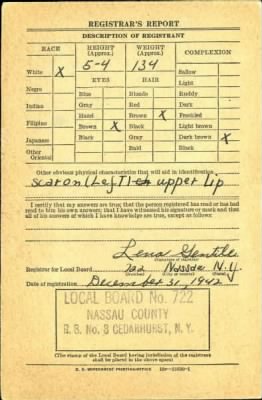 REGISTRAR'S REPORT
DESCRIPTION OF REGISTRANT
RACE HEIGHT (Approx.) WEIGHT (Approx.) COMPLEXION
White X 5-4 134 Sallow
EYES HAIR Light
Negro Blue Blonde Ruddy
Indian Gray Red Dark
Hazel Brown X Freckled
Filipino Brown X Black Light brown
Japanese Black Gray Dark brown X
Other Oriental Bald Black
Other obvious physical characteristics that will aid in identification
Scar on (Left) upper lip
I certify that my answers are true; that the person registered has read or has had
read to him his own answers; that I have witnessed his signature or mark and that
all of his answers of which I have knowledge are true, except as follows:
Lena Gentile
(Signature of registrar)
Registrar for Local Board 722 Nassau N.Y.
Date of registration December 31, 1942
LOCAL BOARD No. 722
NASSAU COUNTY
CEDARHURST, N. Y.
(The stamp of the Local Board having jurisdiction of the registrant
shall be placed in the above space)
U. S. GOVERNMENT PRINTING OFFICE